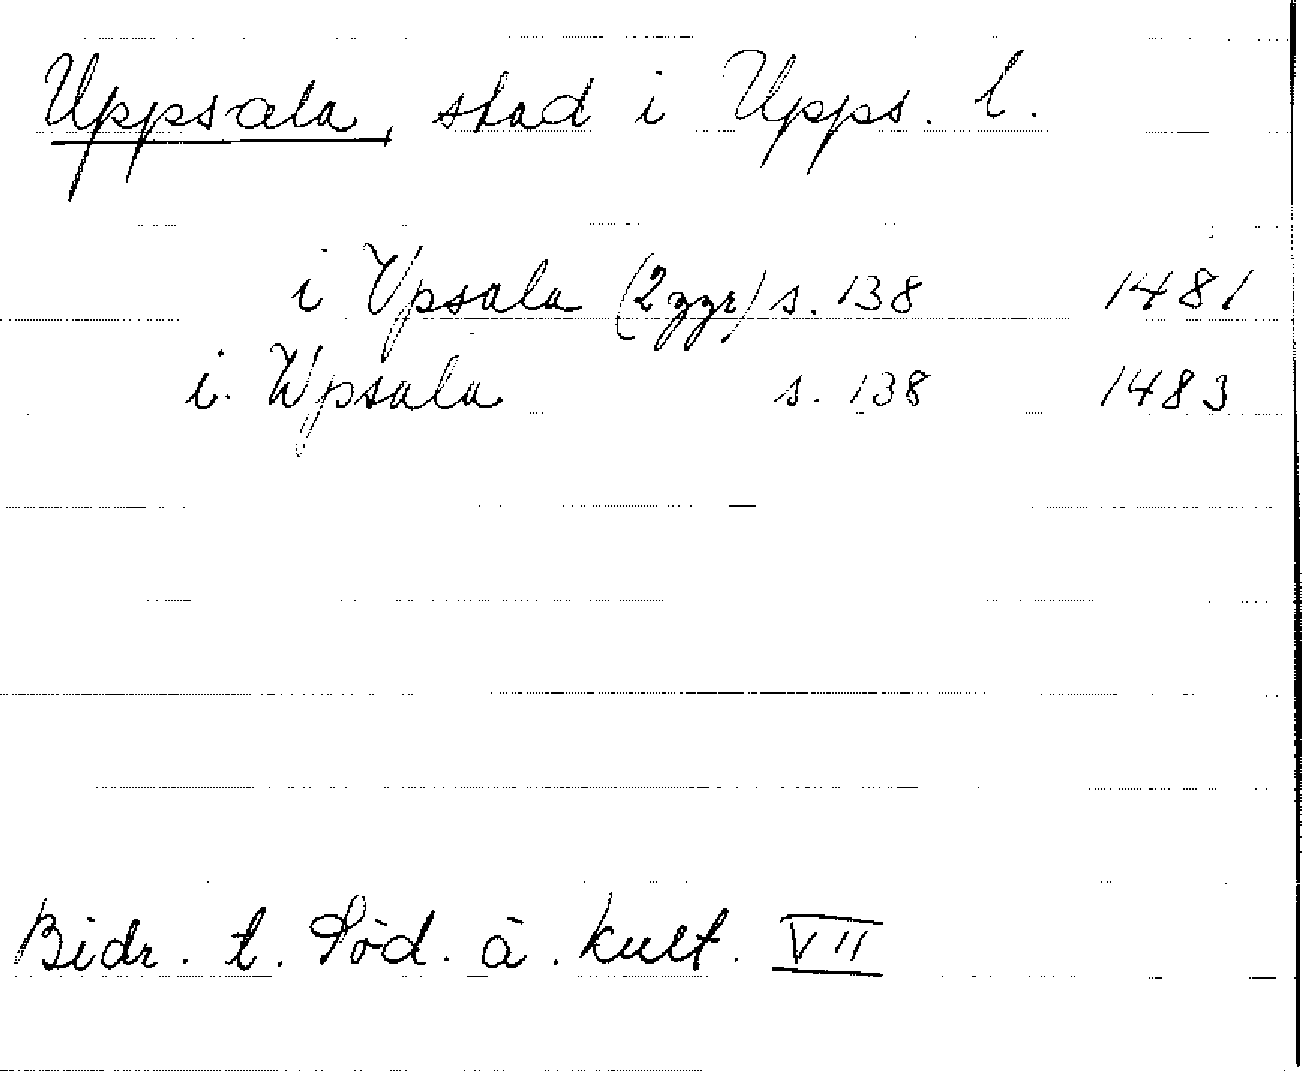 Uppsala, stad i Upps. l.
i Vpsala (2ggr) s. 138 1481
i. Wpsala s. 138 1483
Bidr. t. Söd. ä. kult. VII